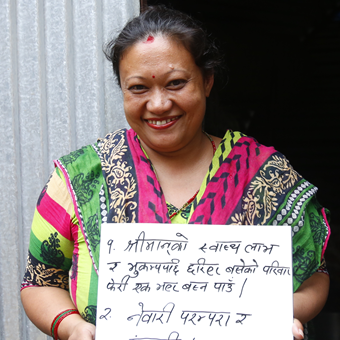 १. श्रीमान्को स्वास्थ्य लाभ
र भुकम्पपछि छरिएर बसेको परिवार
फेरी एक भएर बस्न पाउँ।
२. नेवारी परम्परा र